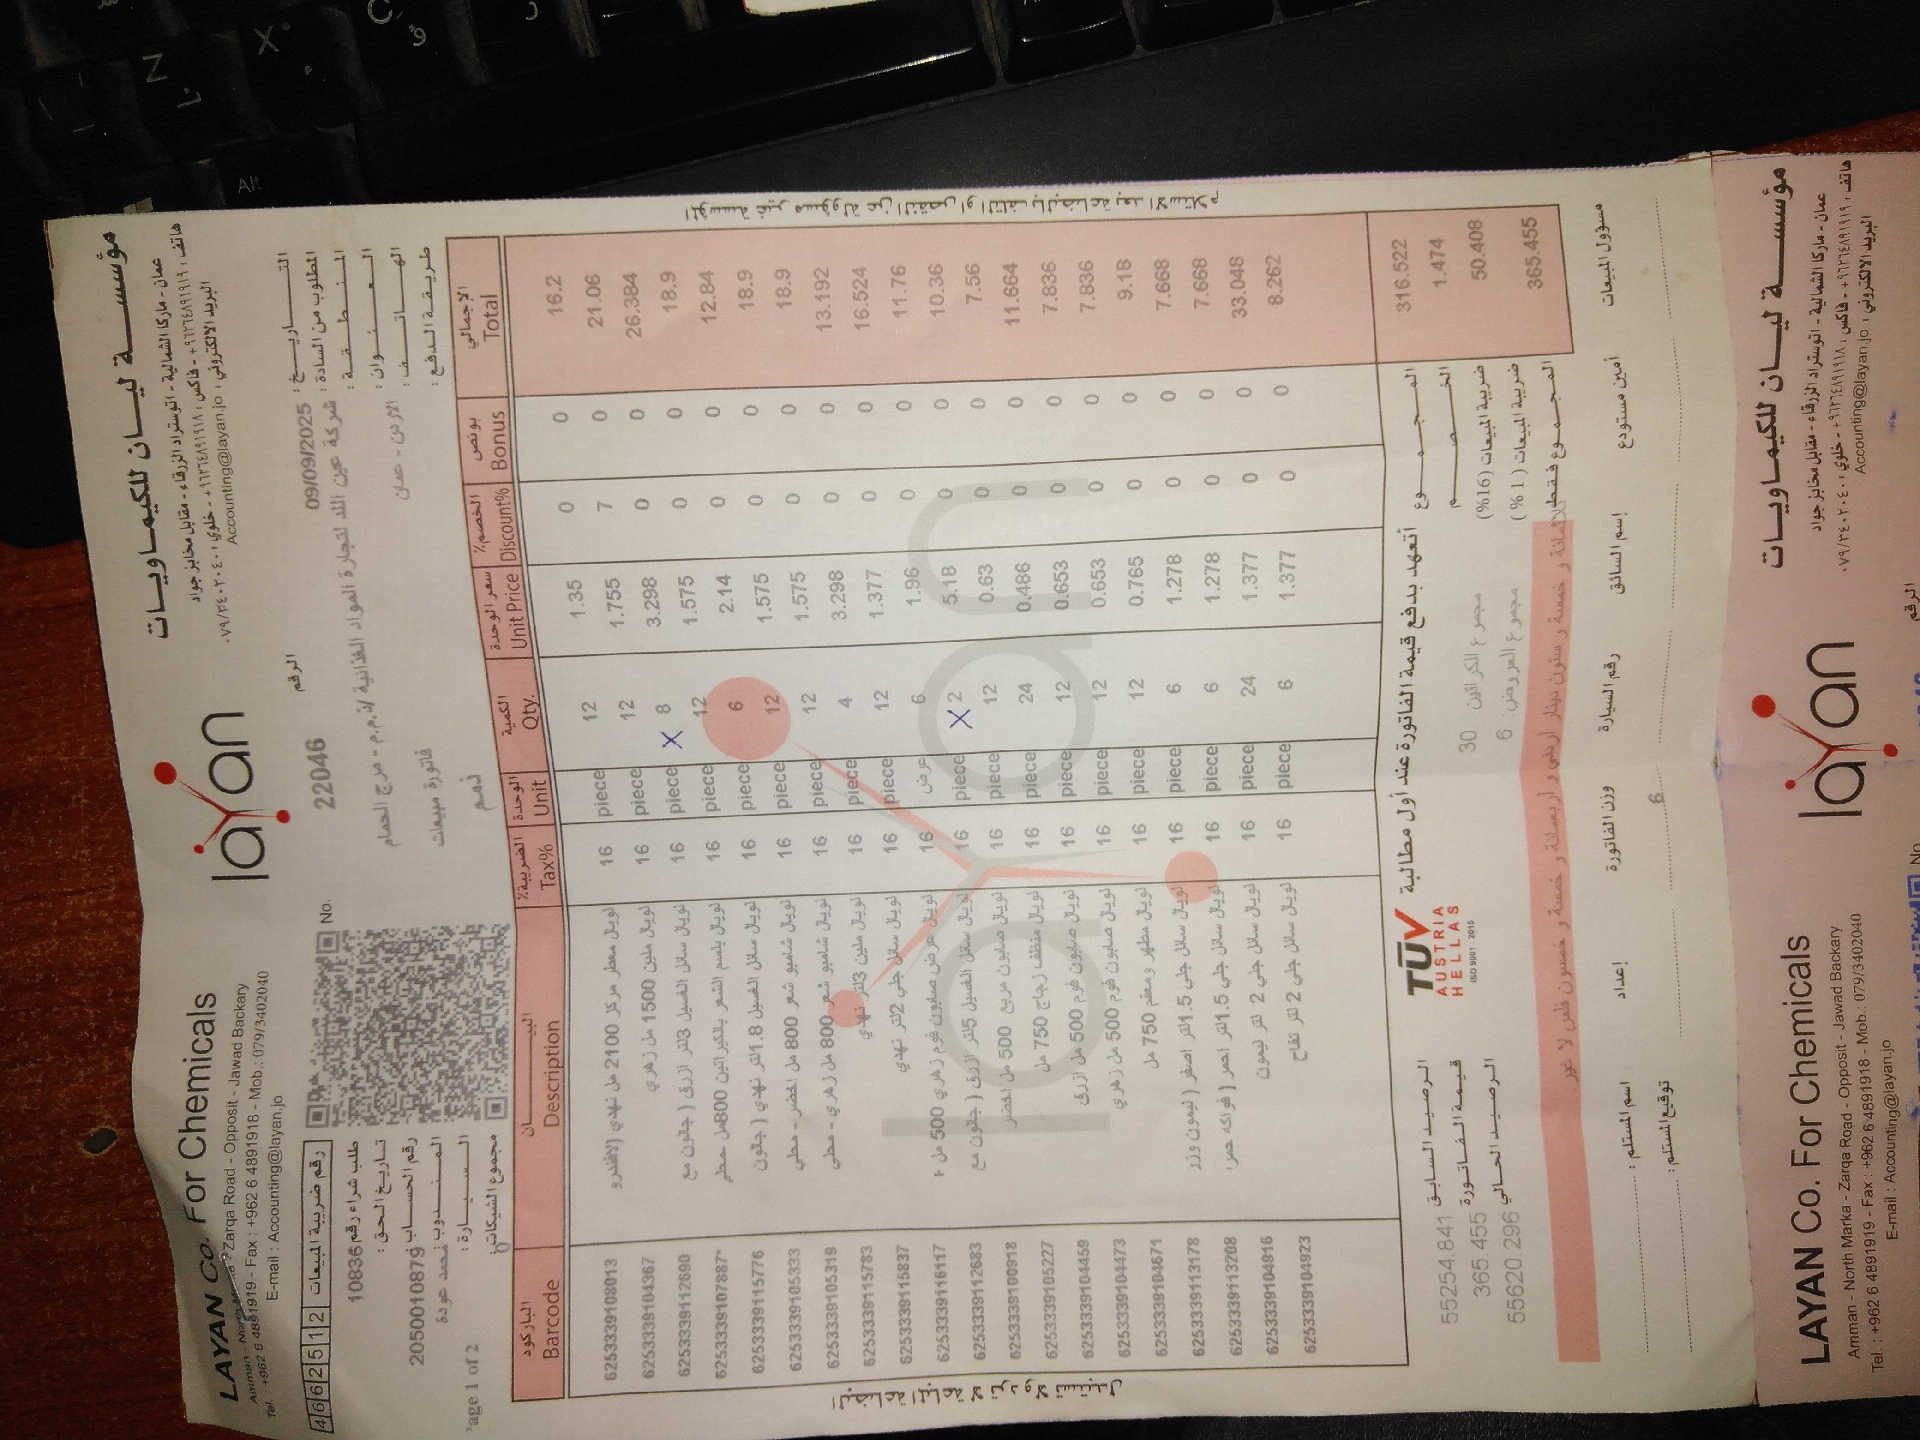 LAYAN Co. For Chemicals
Amman - North Marka - Zarqa Road - Opposit - Jawad Backary
Tel. : +962 6 4891919 - Fax : +962 6 4891918 - Mob.: 079/3402040
E-mail : Accounting@layan.jo
layan
مؤسسة ليان للكيماويات
عمان - ماركا الشمالية - اتوستراد الزرقاء - مقابل مخابز جواد
هاتف : ٩٦٢٦٤٨٩١٩١٩+ - فاكس : ٩٦٢٦٤٨٩١٩١٨+ - خلوي : ٠٧٩/٣٤٠٢٠٤٠
البريد الالكتروني : Accounting@layan.jo
رقم ضريبة المبيعات 4662512
No. 22046 الرقم
التاريخ : 09/09/2025
طلب شراء رقم 10836
المطلوب من السادة : شركة عين اللد لتجارة المواد الغذائية ذ.م.م - مرج الحمام
تاريخ الحق :
المنطقة :
رقم الحساب 2050010879
العنوان : الاردن - عمان
المندوب محمد عودة
الهاتف :
فاتورة مبيعات
السيارة :
طريقة الدفع :
ذمم
مجموع الشيكات 0
age 1 of 2
الباركود البيان الضريبة٪ الوحدة الكمية سعر الوحدة الخصم٪ بونص الإجمالي
Barcode Description Tax% Unit Qty. Unit Price Discount% Bonus Total
6253339108013 لويال معطر مركز 2100 مل نهدي (لافندر و 16 piece 12 1.35 0 0 16.2
6253339104367 لويال ملين 1500 مل زهري 16 piece 12 1.755 7 0 21.06
6253339112690 لويال سائل الغسيل 3لتر ازرق ( جالون مع 16 piece X 8 3.298 0 0 26.384
6253339107887 لويال بلسم الشعر بالكيراتين 800مل 16 piece 12 1.575 0 0 18.9
6253339115776 لويال سائل الغسيل 1.8لتر نهدي ( جالون 16 piece 6 2.14 0 0 12.84
6253339105333 لويال شامبو شعر 800 مل اخضر - محلي 16 piece 12 1.575 0 0 18.9
6253339105319 لويال شامبو شعر 800 مل زهري - محلي 16 piece 12 1.575 0 0 18.9
6253339115783 لويال ملين 3لتر نهدي 16 piece 4 3.298 0 0 13.192
6253339115837 لويال سائل جلي 2لتر نهدي 16 piece 12 1.377 0 0 16.524
6253339116117 لويال عرض صابون فوم زهري 500 مل 16 عرض 6 1.96 0 0 11.76
6253339112683 لويال سائل الغسيل 5لتر ازرق ( جالون مع 16 piece X 2 5.18 0 0 10.36
6253339100918 لويال صابون مربع 500 مل اخضر 16 piece 12 0.63 0 0 7.56
6253339105227 لويال منظف زجاج 750 مل 16 piece 24 0.486 0 0 11.664
6253339104459 لويال صابون فوم 500 مل ازرق 16 piece 12 0.653 0 0 7.836
6253339104473 لويال صابون فوم 500 مل زهري 16 piece 12 0.653 0 0 7.836
6253339104671 لويال مطهر ومعقم 750 مل 16 piece 12 0.765 0 0 9.18
6253339113178 لويال سائل جلي 1.5لتر اصفر ( ليمون وزز 16 piece 6 1.278 0 0 7.668
6253339113208 لويال سائل جلي 1.5لتر احمر ( فواكه حمر 16 piece 6 1.278 0 0 7.668
6253339104916 لويال سائل جلي 2 لتر ليمون 16 piece 24 1.377 0 0 33.048
6253339104923 لويال سائل جلي 2 لتر تفاح 16 piece 6 1.377 0 0 8.262
البضاعة المباعة لا ترد ولا تستبدل
المؤسسة غير مسؤولة عن النقص او التلف بالبضاعة بعد الاستلام
TÜV
AUSTRIA
HELLAS
ISO 9001 : 2015
أتعهد بدفع قيمة الفاتورة عند أول مطالبة
المجموع 316.522
الرصيد السابق 55254.841
الخصم 1.474
قيمة الفاتورة 365.455
مجموع الكراتين 30
ضريبة المبيعات (16%) 50.408
الرصيد الحالي 55620.296
مجموع العروض: 6
ضريبة المبيعات (1%)
المجموع فقط 365.455
ثلاثمائة و خمسة و ستون دينار اردني و اربعمائة و خمسة و خمسون فلس لا غير
اسم المستلم : إعداد وزن الفاتورة رقم السيارة إسم السائق أمين مستودع مسؤول المبيعات
توقيع المستلم : 6
LAYAN Co. For Chemicals
Amman - North Marka - Zarqa Road - Opposit - Jawad Backary
Tel. : +962 6 4891919 - Fax : +962 6 4891918 - Mob.: 079/3402040
E-mail : Accounting@layan.jo
layan
مؤسسة ليان للكيماويات
عمان - ماركا الشمالية - اتوستراد الزرقاء - مقابل مخابز جواد
هاتف : ٩٦٢٦٤٨٩١٩١٩+ - فاكس : ٩٦٢٦٤٨٩١٩١٨+ - خلوي : ٠٧٩/٣٤٠٢٠٤٠
البريد الالكتروني : Accounting@layan.jo
No. الرقم
Alt
Z
X
C